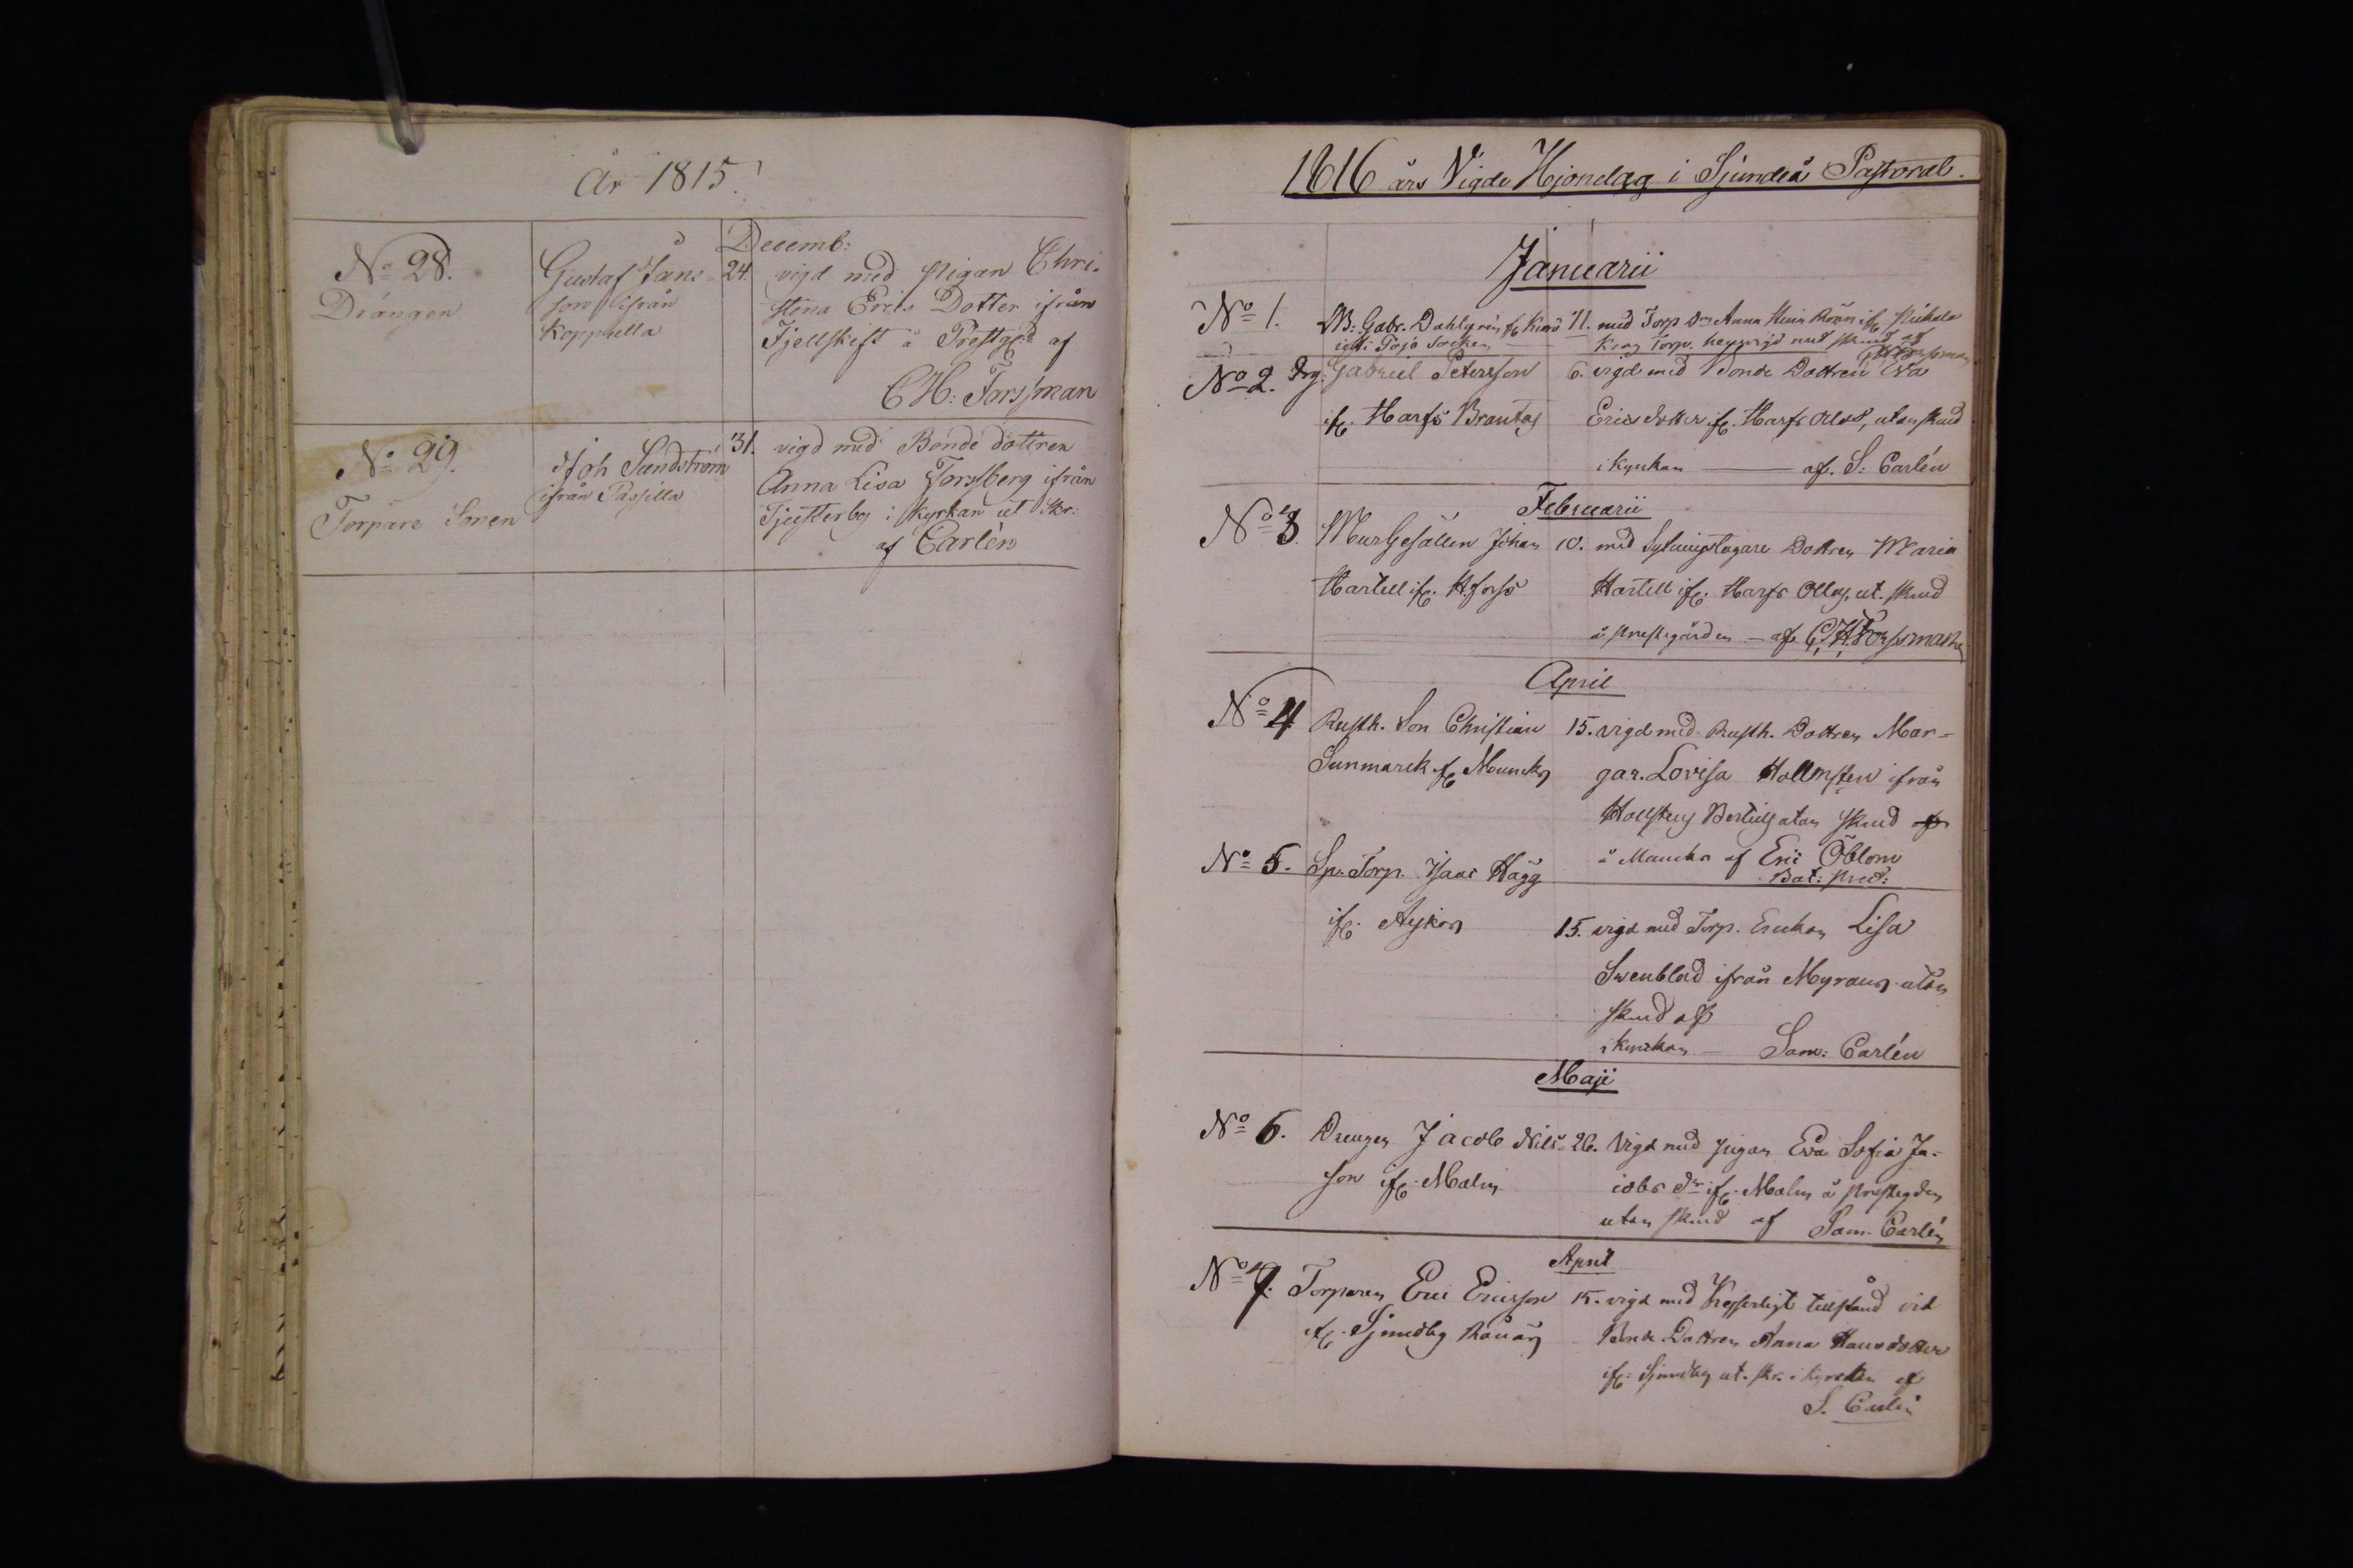 År 1815.
Decemb:
No 28.
Drängen
Gustaf Jans-
son ifrån
Koppsella
24. vigd med pigan Chri-
stina Erics Dotter ifrån
Fjellskift å Prestg:d af
C H: Forssman
No 29.
Torpare Sonen
Joh Sandström
ifrån Passilla
31. vigd med Bonde dottren
Anna Lisa Forssberg ifrån
Tjusterby i Kyrkan ut Skr:
af Carlén
1816 års Vigde Hjonelag i Sjundeå Pastorat.
Januarii
No 1. B: Gabr. Dahlgrén fr
i Pojo Socken
11. med Torp Dr Anna
Torp. med skrud af
Forssman
No 2. Drg: Gabriel Petersson
ifr. Harfs Brantas
6. vigd med Bonde Dottren Eva
Erics dotter ifr. Harfs Ollas, utan skrud
i Kyrkan — af. S: Carlén
Februarii
No 3. MurGesällen Johan
Hartell ifr. H.fors
10. med Sytningstagare Dottren Maria
Hartell ifr. Harfs Ollas, ut. skrud
å prestegården — af C. H. Forssman
April
No 4 Rusth. Son Christian
Sunmarck fr Muncks
15. vigd med Rusth. Dottren Mar-
gar. Lovisa Hollmsten ifrån
Hollstens Bertils utan skrud af
å Muncks af Eric Öblom
Bat: pred:
No 5. Sp. Torp. Isaac Hägg
ifr.
15. vigd med Torp. Enckan Lisa
Svenblad ifrån Myrans utan
skrud af
i Kyrkan — Sam: Carlén
Maji
No 6. Drengen Jacob Nils-
son ifr. Malm
26. Vigd med pigan Eva Sofia Ja-
cobs dr ifr. Malm å prestegden
utan skrud af Sam. Carlén
April
No 7. Torparen Eric Ericsson
ifr. Sjundby
15. vigd med Kejserligt tillstånd vid
Bonde Dottren Anna Hansdotter
ifr: Sjundby ut. skr. i Kyrckan af
S. Carlén